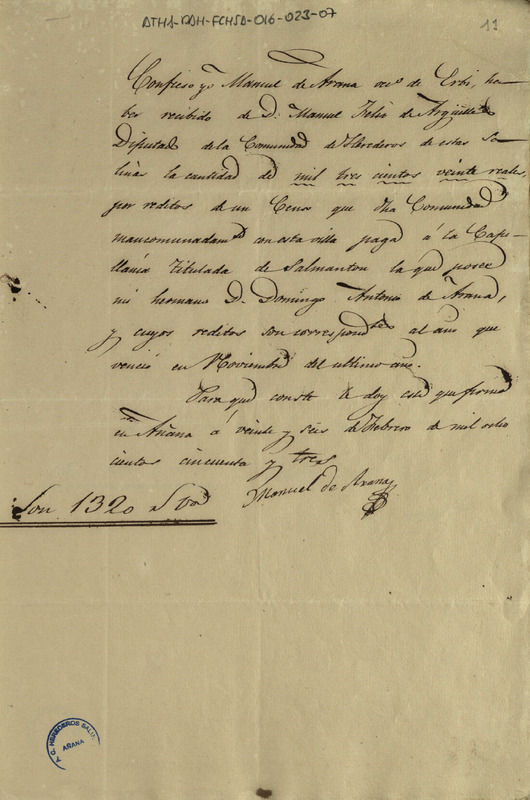 ATHA-DAH-FCHSA-016-023-07
13
Confieso yo Manuel de Arana vec.º de Erbi, ha-
ber recibido de D. Manuel Felix de Argüelles
Diputado de la Comunidad de Herederos de estas Sa-
linas la cantidad de mil tres cientos veinte reales,
por reditos de un Censo que dha Comunidad
mancomunadam.te con esta villa paga á la Cape-
llanía titulada de Salmanton la que posee
mi hermano D. Domingo Antonio de Arana,
y cuyos reditos son correspond.tes al año que
venció en Noviembre del ultimo año.
Para que conste le doy este que firmo
en Añana á veinte y seis de Febrero de mil ocho
cientos cincuenta y tres
Manuel de Arana
Son 1320 r.s v.on
HEREDEROS SALINAS
AÑANA